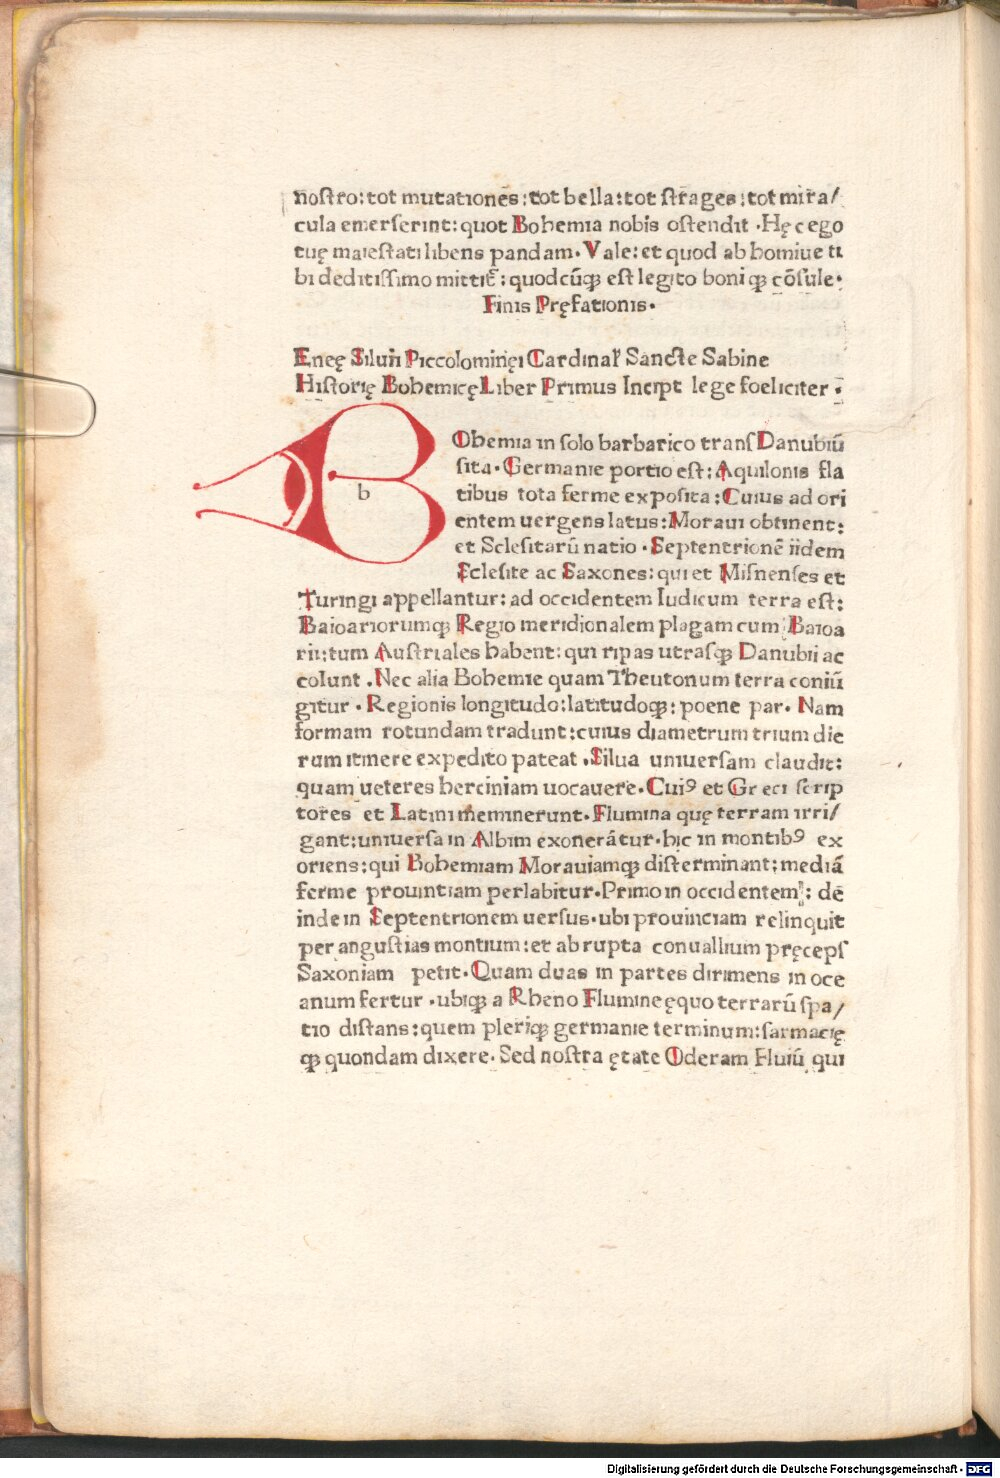 nostro:tot mutationes:tot bella:tot strages:tot mira/
cula emerserint:quot Bohemia nobis ostendit ·Hęc ego
tuę maiestati libens pandam· Vale: et quod ab homine ti
bi deditissimo mittit̃: quodcūqꝫ est legito boniqꝫ cōsule·
Finis Pręfationis·
Eneę Siluii Piccolominęi Cardinaľ Sancte Sabine
Historię Bohemicę Liber Primus Incipt lege foeliciter ·
b
Ohemia in solo barbarico trans Danubiū
sita· Germanie portio est: Aquilonis fla
tibus tota ferme exposita: Cuius ad ori
entem uergens latus: Moraui obtinent:
et Sclesitarū natio · Septentrionē iidem
Sclesite ac Saxones: qui et Misnenses et
Turingi appellantur: ad occidentem Iudicum terra est:
Baioariorumqꝫ Regio meridionalem plagam cum Baioa
rii:tum Australes habent: qui ripas utrasqꝫ Danubii ac
colunt . Nec alia Bohemie quam Theutonum terra coniū
gitur · Regionis longitudo:latitudoqꝫ: poene par· Nam
formam rotundam tradunt:cuius diametrum trium die
rum itinere expedito pateat .Silua uniuersam claudit:
quam ueteres herciniam uocauere· Cuiꝰ et Greci scrip
tores et Latini meminerunt· Flumina quę terram irri/
gant:uniuersa in Albim exonerātur·hic in montibꝰ ex
oriens:qui Bohemiam Morauiamqꝫ disterminant:mediā
ferme prouintiam perlabitur·Primo in occidentem: dē
inde in Septentrionem uersus·ubi prouinciam relinquit
per angustias montium:et abrupta conuallium pręceps
Saxoniam petit· Quam duas in partes dirimens in oce
anum fertur ·ubiqꝫ a Rheno Flumine ęquo terrarū spa/
tio distans:quem pleriqꝫ germanie terminum:sarmacię
qꝫ quondam dixere· Sed nostra ętate Oderam Fluiū qui
Digitalisierung gefördert durch die Deutsche Forschungsgemeinschaft - DFG